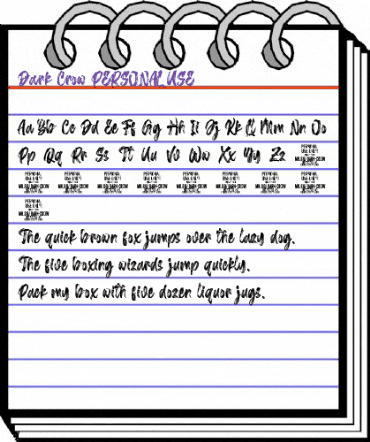 Dark Crow PERSONAL USE
Aa Bb Cc Dd Ee Ff Gg Hh Ii Jj Kk Ll Mm Nn Oo
Pp Qq Rr Ss Tt Uu Vv Ww Xx Yy Zz
The quick brown fox jumps over the lazy dog.
The five boxing wizards jump quickly.
Pack my box with five dozen liquor jugs.